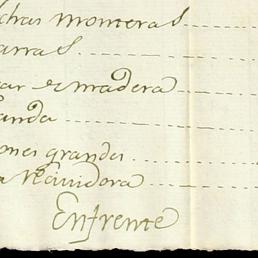 chas monteras
arras
ar de madera
anda
ones grandes
a recividora
Enfrente